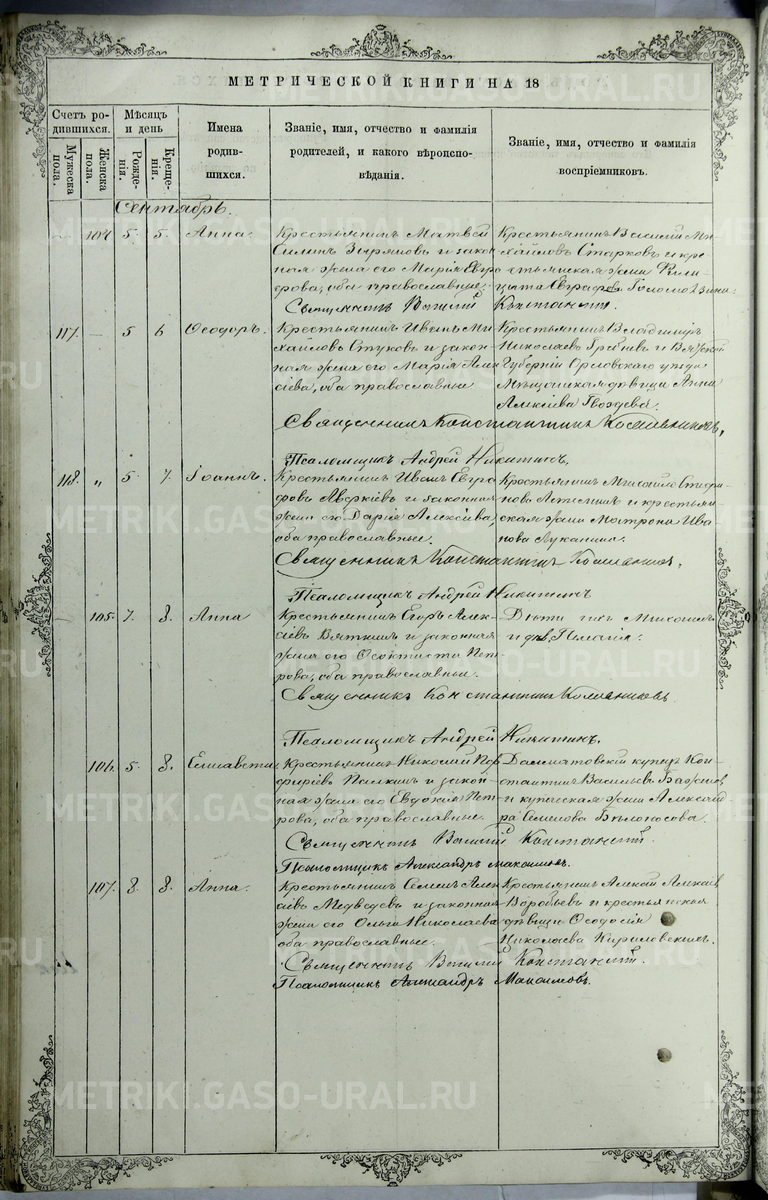 МЕТРИЧЕСКОЙ КНИГИ НА 18
Счетъ ро-
дившихся.
Мужеска
пола.
Женска
пола.
Мѣсяцъ
и день
Рожде-
нія.
Креще-
нія.
Имена
родив-
шихся.
Званіе, имя, отчество и фамилія
родителей, и какого вѣроиспо-
вѣданія.
Званіе, имя, отчество и фамилія
воспріемниковъ.
Сентябрь.
104 5. 5. Анна.
Крестьянинъ Матвей
Силинъ Зырямовъ и закон
ная жена его Марія Евгра
фова, оба православные.
Крестьянинъ Василій Ми
хайловъ Старковъ и кре
стьянская жена
Евграфова
Священникъ Василій Констансовъ
117. — 5 6 Ѳеодоръ.
Крестьянинъ Иванъ Ми
хайловъ Стуковъ и закон-
ная жена его Марія Алек
сѣева, оба православные
Крестьянинъ Владимиръ
Николаевъ Гребневъ и Вятской
Губерніи Орловскаго уѣзда
Мѣщанская дѣвица Анна
Алексѣева Гвоздева.
Священникъ Константинъ
Псаломщикъ Андрей Никитинъ.
118. „ 5 7. Іоаннъ.
Крестьянинъ Иванъ Евгра
фовъ Аверкіевъ и законная
жена его Дарія Алексѣева,
оба православные.
Крестьянинъ Михаилъ Стефа
новъ и крестьян
ская жена Матрона Ива
нова Луканина.
Священникъ Константинъ
Псаломщикъ Андрей Никитинъ
105. 7. 8. Анна
Крестьянинъ Егоръ Алек
сѣевъ Вяткинъ и законная
жена его Ѳеоктиста Пет
рова, оба православные.
Дѣти ихъ Михаилъ
и дѣв. Пелагія.
Священникъ Константинъ
Псаломщикъ Андрей Никитинъ.
106. 5. 8. Елисавета
Крестьянинъ Николай Пор
фирьевъ Палкинъ и закон-
ная жена его Евдокія Пет
рова, оба православные.
Далматовскій купецъ Кон-
стантинъ Васильевъ
и купеческая жена Александ
ра Семенова Бѣлоносова.
Священникъ Василій
Псаломщикъ Александръ Максимовъ.
107. 8. 8. Анна.
Крестьянинъ Семенъ Алек
сѣевъ Медведевъ и законная
жена его Ольга Николаева
оба православные.
Крестьянинъ Алексѣй Алексѣев
Воробьевъ и крестьянская
дѣвица Ѳеодосія
Николаева
Священникъ Василій
Псаломщикъ Александръ Максимовъ.
METRIKI.GASO-URAL.RU